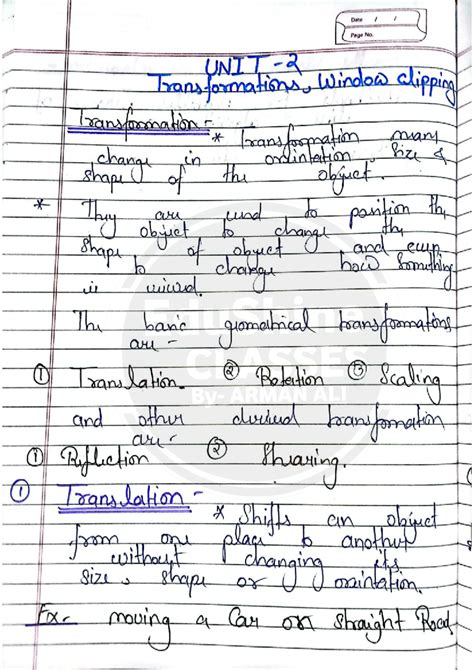 Date / /
Page No.
UNIT-2
Transformations, Window clipping
Transformation -
* Transformation many
change in orintation, size &
shape of the object.
* They are used to position the
object to change the
shape of object and even
to change how something
is viewed.
The basic geomatrical transformations
are -
① Translation. ② Rotation ③ Scaling
and other derived transformation
are -
① Reflection ② Shearing.
① Translation -
* Shifts an object
from one place to another
without changing its
size, shape or orintation.
Ex- moving a Car on Straight Road
EduShine
CLASSES
By- ARMAN ALI